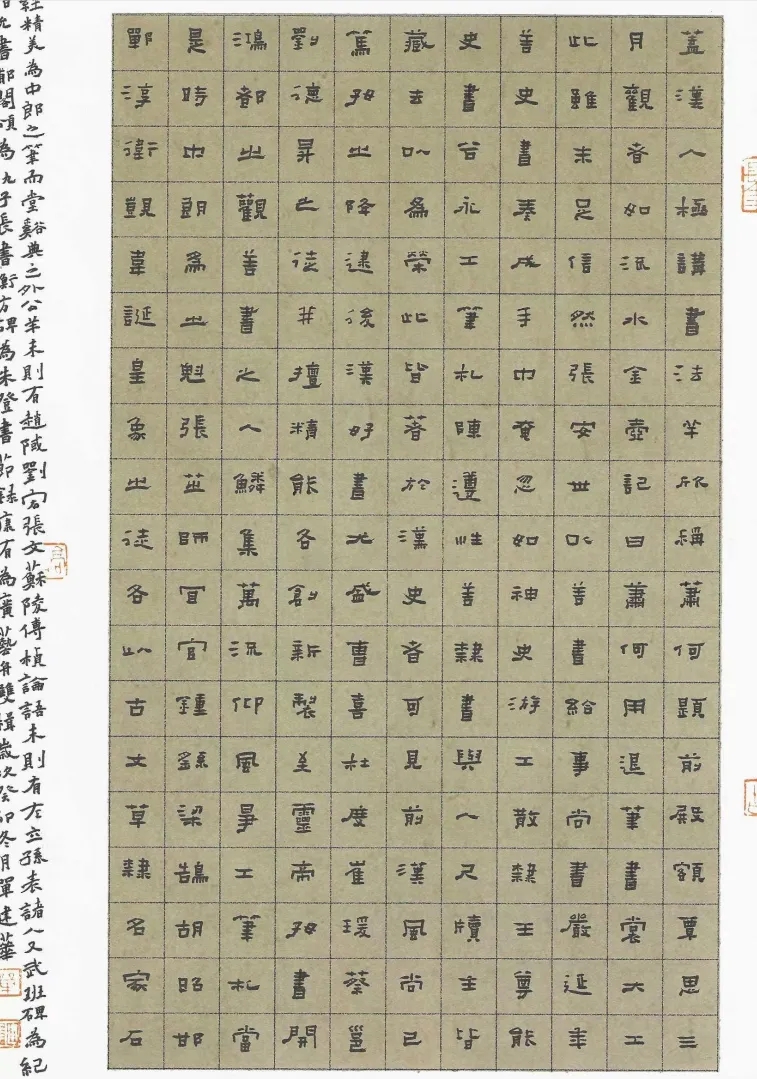 蓋漢人極講書法羊欣稱蕭何題前殿額覃思三
月觀者如流水金壺記曰蕭何用退筆書裳大工
此雖未足信然張安世以善書給事尚書嚴延年
善史書奏成手中奄忽如神史游工散隸王尊能
史書谷永工筆札陳遵性善隸書與人尺牘主皆
藏去以為榮此皆著於漢史者可見前漢風尚已
篤好之降逮後漢好書尤盛曹喜杜度崔瑗蔡邕
劉德昇之徒并擅精能各創新製至靈帝好書開
鴻都之觀善書之人鱗集萬流仰風爭工筆札當
是時中郎為之魁張芝師宜官鍾繇梁鵠胡昭邯
鄲淳衛覬韋誕皇象之徒各以古文草隸名家石
經精美為中郎之筆而堂谿典之外公羊末則有趙陚劉宏張文蘇陵傅楨論語末則有左立孫表諸人又武班碑為紀
伯允書郙閣頌為仇子長書衡方碑為朱登書節錄康有為廣藝舟雙楫歲次癸卯冬月單建華